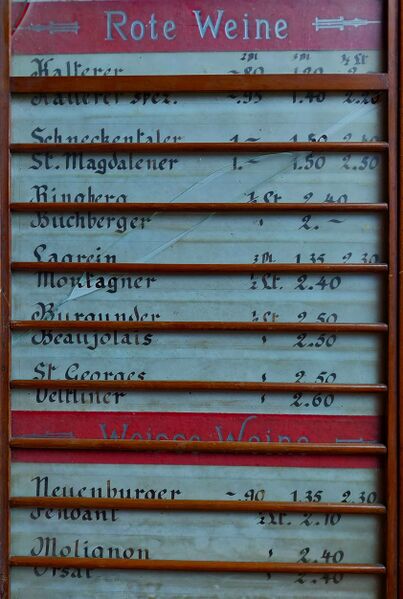 Rote Weine
2dl 3dl ½ Lt
Kalterer -.80 1.20 2.-
Kalterer Spez. -.95 1.40 2.25
Schneckentaler 1.- 1.50 2.50
St. Magdalener 1.- 1.50 2.50
Ringberg ½ Lt. 2.40
Buchberger " 2.-
Lagrein 3dl. 1.35 2.30
Montagner ½ Lt. 2.40
Burgunder ½ Lt. 2.50
Beaujolais " 2.50
St Georges " 2.50
Veltliner " 2.60
Weisse Weine
Neuenburger -.90 1.35 2.30
Fendant ½ Lt. 2.10
Molignon " 2.40
Orsat " 2.40